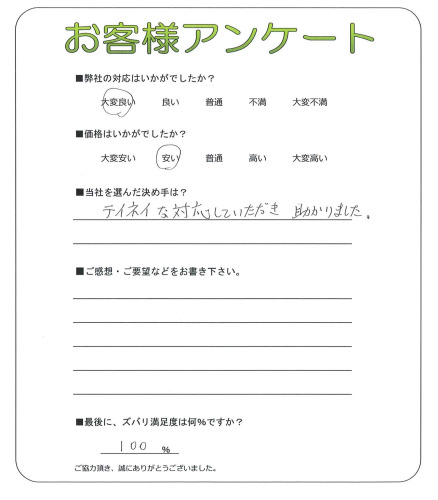 お客様アンケート
■弊社の対応はいかがでしたか?
大変良い 良い 普通 不満 大変不満
■価格はいかがでしたか?
大変安い 安い 普通 高い 大変高い
■当社を選んだ決め手は?
テイネイな対応していただき 助かりました。
■ご感想・ご要望などをお書き下さい。
■最後に、ズバリ満足度は何%ですか?
100 %
ご協力頂き、誠にありがとうございました。